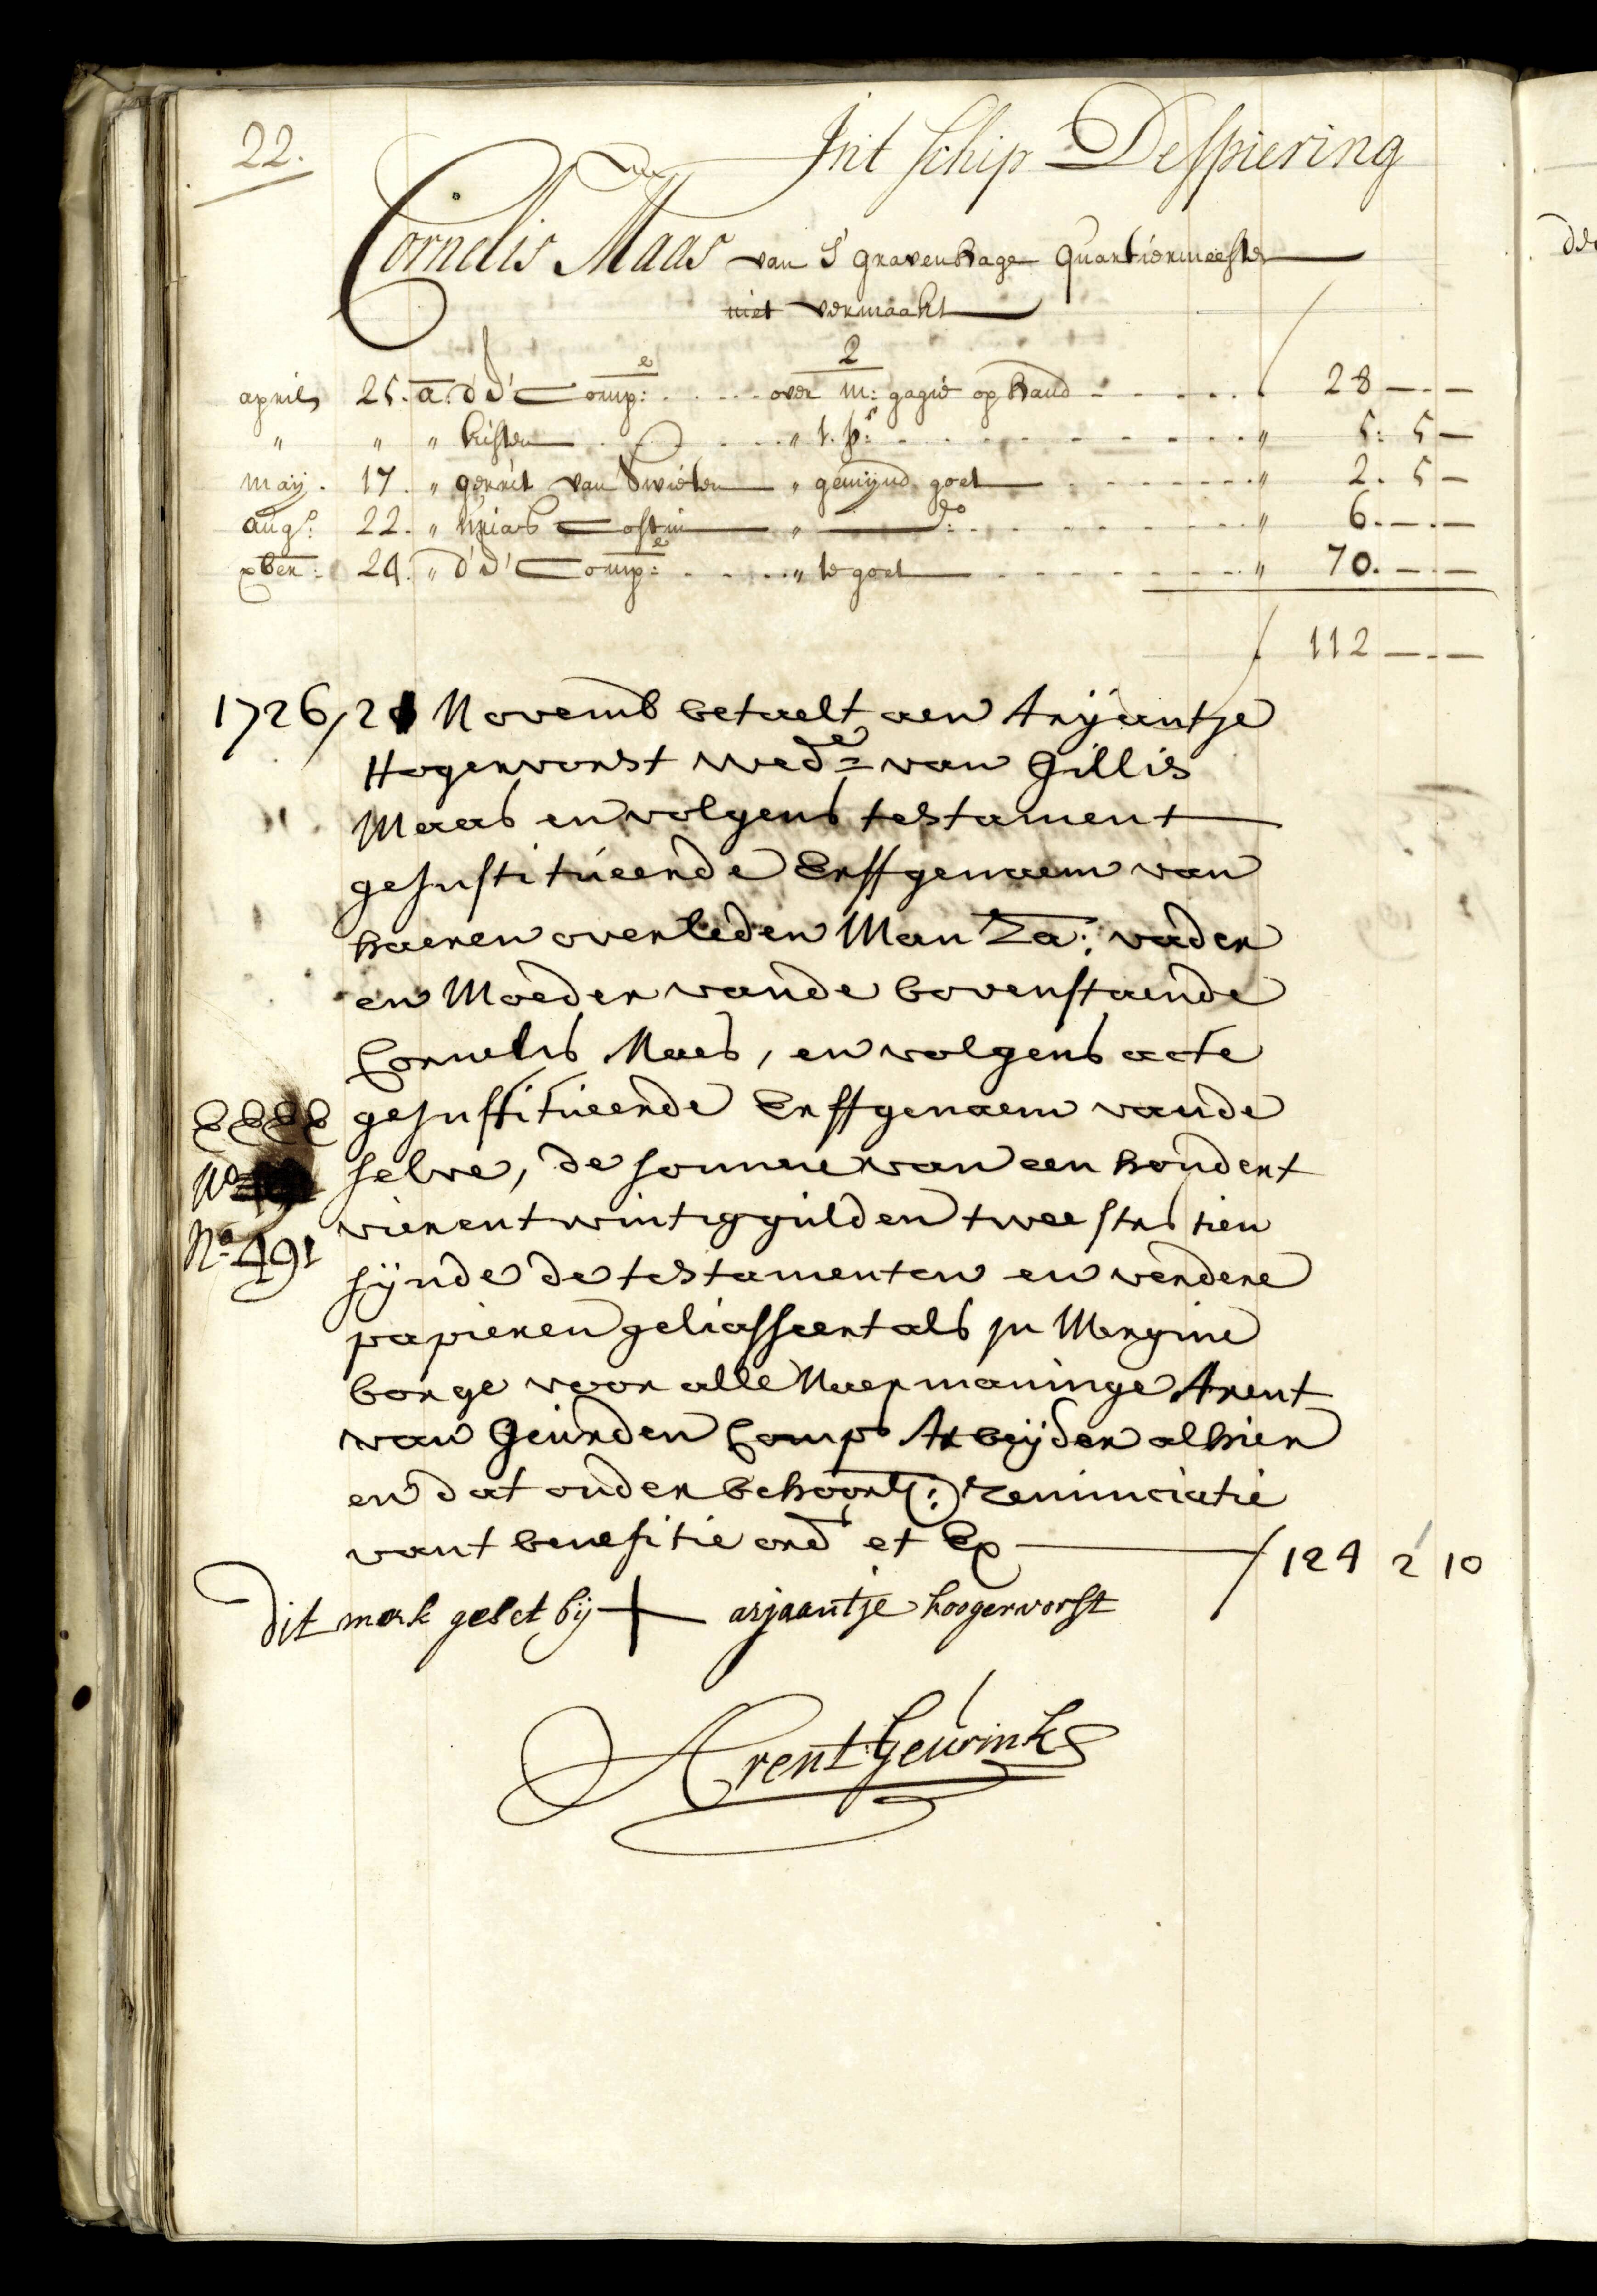 22.
Int schip De Spiering
Cornelis Maas van S' gravenhage Quartiermeester
niet vermaakt
april 25. a d'E' Compe: over 2 m: gagie op hand ƒ 28 -.-
" " " kisten " 1. ps: " 5: 5 -
may. 17. " gerrit van Swieten " gemijnd goet " 2. 5 -
augs: 22. " Costin " do: " 6. -.-
xber: 24. " d'E' Compe: " te goet " 70. -.-
ƒ 112 -.-
1726/21 Novemb betaelt aen Arijaentje
Hogervorst wede= van Gillis
Maas en volgens testament
geJnstitueerde Erffgenaem van
haeren overleden Man Za: vader
en Moeder vande bovenstaende
Cornelis Maas, en volgens acte
geJnstitueerde Erffgenaem vande
selve, de somme van een hondert
vierentwintig gulden twee strs tien
sijnde de testamenten en verdere
papieren geliasseert als jn Margine
borge voor alle Naermaninge Arent
van Geurden Comps Arbeijder alhier
en dat onder behoorl: renunciatie
vant benefitie ord et Ex ƒ 124 2 10
EEEE
No
No 491
Dit merk geset bij + arjaantje hoogervorst
Arent Geurinks